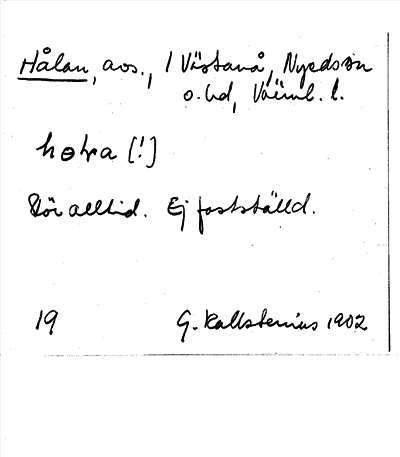 Hålan, avs., / Västanå, Nyeds sn
o. hd, Värml. l.
hola [!]
För alltid. Ej fastställd.
19 G. Kallstenius 1902